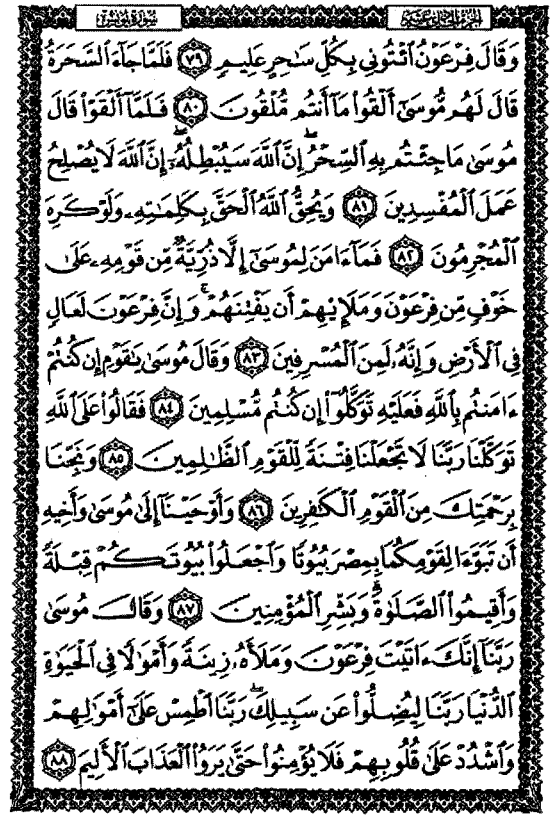 سورة يونس
الجزء الحادي عشر
وَقَالَ فِرْعَوْنُ ٱئْتُونِي بِكُلِّ سَٰحِرٍ عَلِيمٍ ٧٩ فَلَمَّا جَآءَ ٱلسَّحَرَةُ
قَالَ لَهُم مُّوسَىٰٓ أَلْقُوا۟ مَآ أَنتُم مُّلْقُونَ ٨٠ فَلَمَّآ أَلْقَوْا۟ قَالَ
مُوسَىٰ مَا جِئْتُم بِهِ ٱلسِّحْرُ ۖ إِنَّ ٱللَّهَ سَيُبْطِلُهُۥٓ ۖ إِنَّ ٱللَّهَ لَا يُصْلِحُ
عَمَلَ ٱلْمُفْسِدِينَ ٨١ وَيُحِقُّ ٱللَّهُ ٱلْحَقَّ بِكَلِمَٰتِهِۦ وَلَوْ كَرِهَ
ٱلْمُجْرِمُونَ ٨٢ فَمَآ ءَامَنَ لِمُوسَىٰٓ إِلَّا ذُرِّيَّةٌ مِّن قَوْمِهِۦ عَلَىٰ
خَوْفٍ مِّن فِرْعَوْنَ وَمَلَإِي۟هِمْ أَن يَفْتِنَهُمْ ۚ وَإِنَّ فِرْعَوْنَ لَعَالٍ
فِي ٱلْأَرْضِ وَإِنَّهُۥ لَمِنَ ٱلْمُسْرِفِينَ ٨٣ وَقَالَ مُوسَىٰ يَٰقَوْمِ إِن كُنتُمْ
ءَامَنتُم بِٱللَّهِ فَعَلَيْهِ تَوَكَّلُوٓا۟ إِن كُنتُم مُّسْلِمِينَ ٨٤ فَقَالُوا۟ عَلَى ٱللَّهِ
تَوَكَّلْنَا رَبَّنَا لَا تَجْعَلْنَا فِتْنَةً لِّلْقَوْمِ ٱلظَّٰلِمِينَ ٨٥ وَنَجِّنَا
بِرَحْمَتِكَ مِنَ ٱلْقَوْمِ ٱلْكَٰفِرِينَ ٨٦ وَأَوْحَيْنَآ إِلَىٰ مُوسَىٰ وَأَخِيهِ
أَن تَبَوَّءَا لِقَوْمِكُمَا بِمِصْرَ بُيُوتًا وَٱجْعَلُوا۟ بُيُوتَكُمْ قِبْلَةً
وَأَقِيمُوا۟ ٱلصَّلَوٰةَ ۗ وَبَشِّرِ ٱلْمُؤْمِنِينَ ٨٧ وَقَالَ مُوسَىٰ
رَبَّنَآ إِنَّكَ ءَاتَيْتَ فِرْعَوْنَ وَمَلَأَهُۥ زِينَةً وَأَمْوَٰلًا فِي ٱلْحَيَوٰةِ
ٱلدُّنْيَا رَبَّنَا لِيُضِلُّوا۟ عَن سَبِيلِكَ ۖ رَبَّنَا ٱطْمِسْ عَلَىٰٓ أَمْوَٰلِهِمْ
وَٱشْدُدْ عَلَىٰ قُلُوبِهِمْ فَلَا يُؤْمِنُوا۟ حَتَّىٰ يَرَوُا۟ ٱلْعَذَابَ ٱلْأَلِيمَ ٨٨